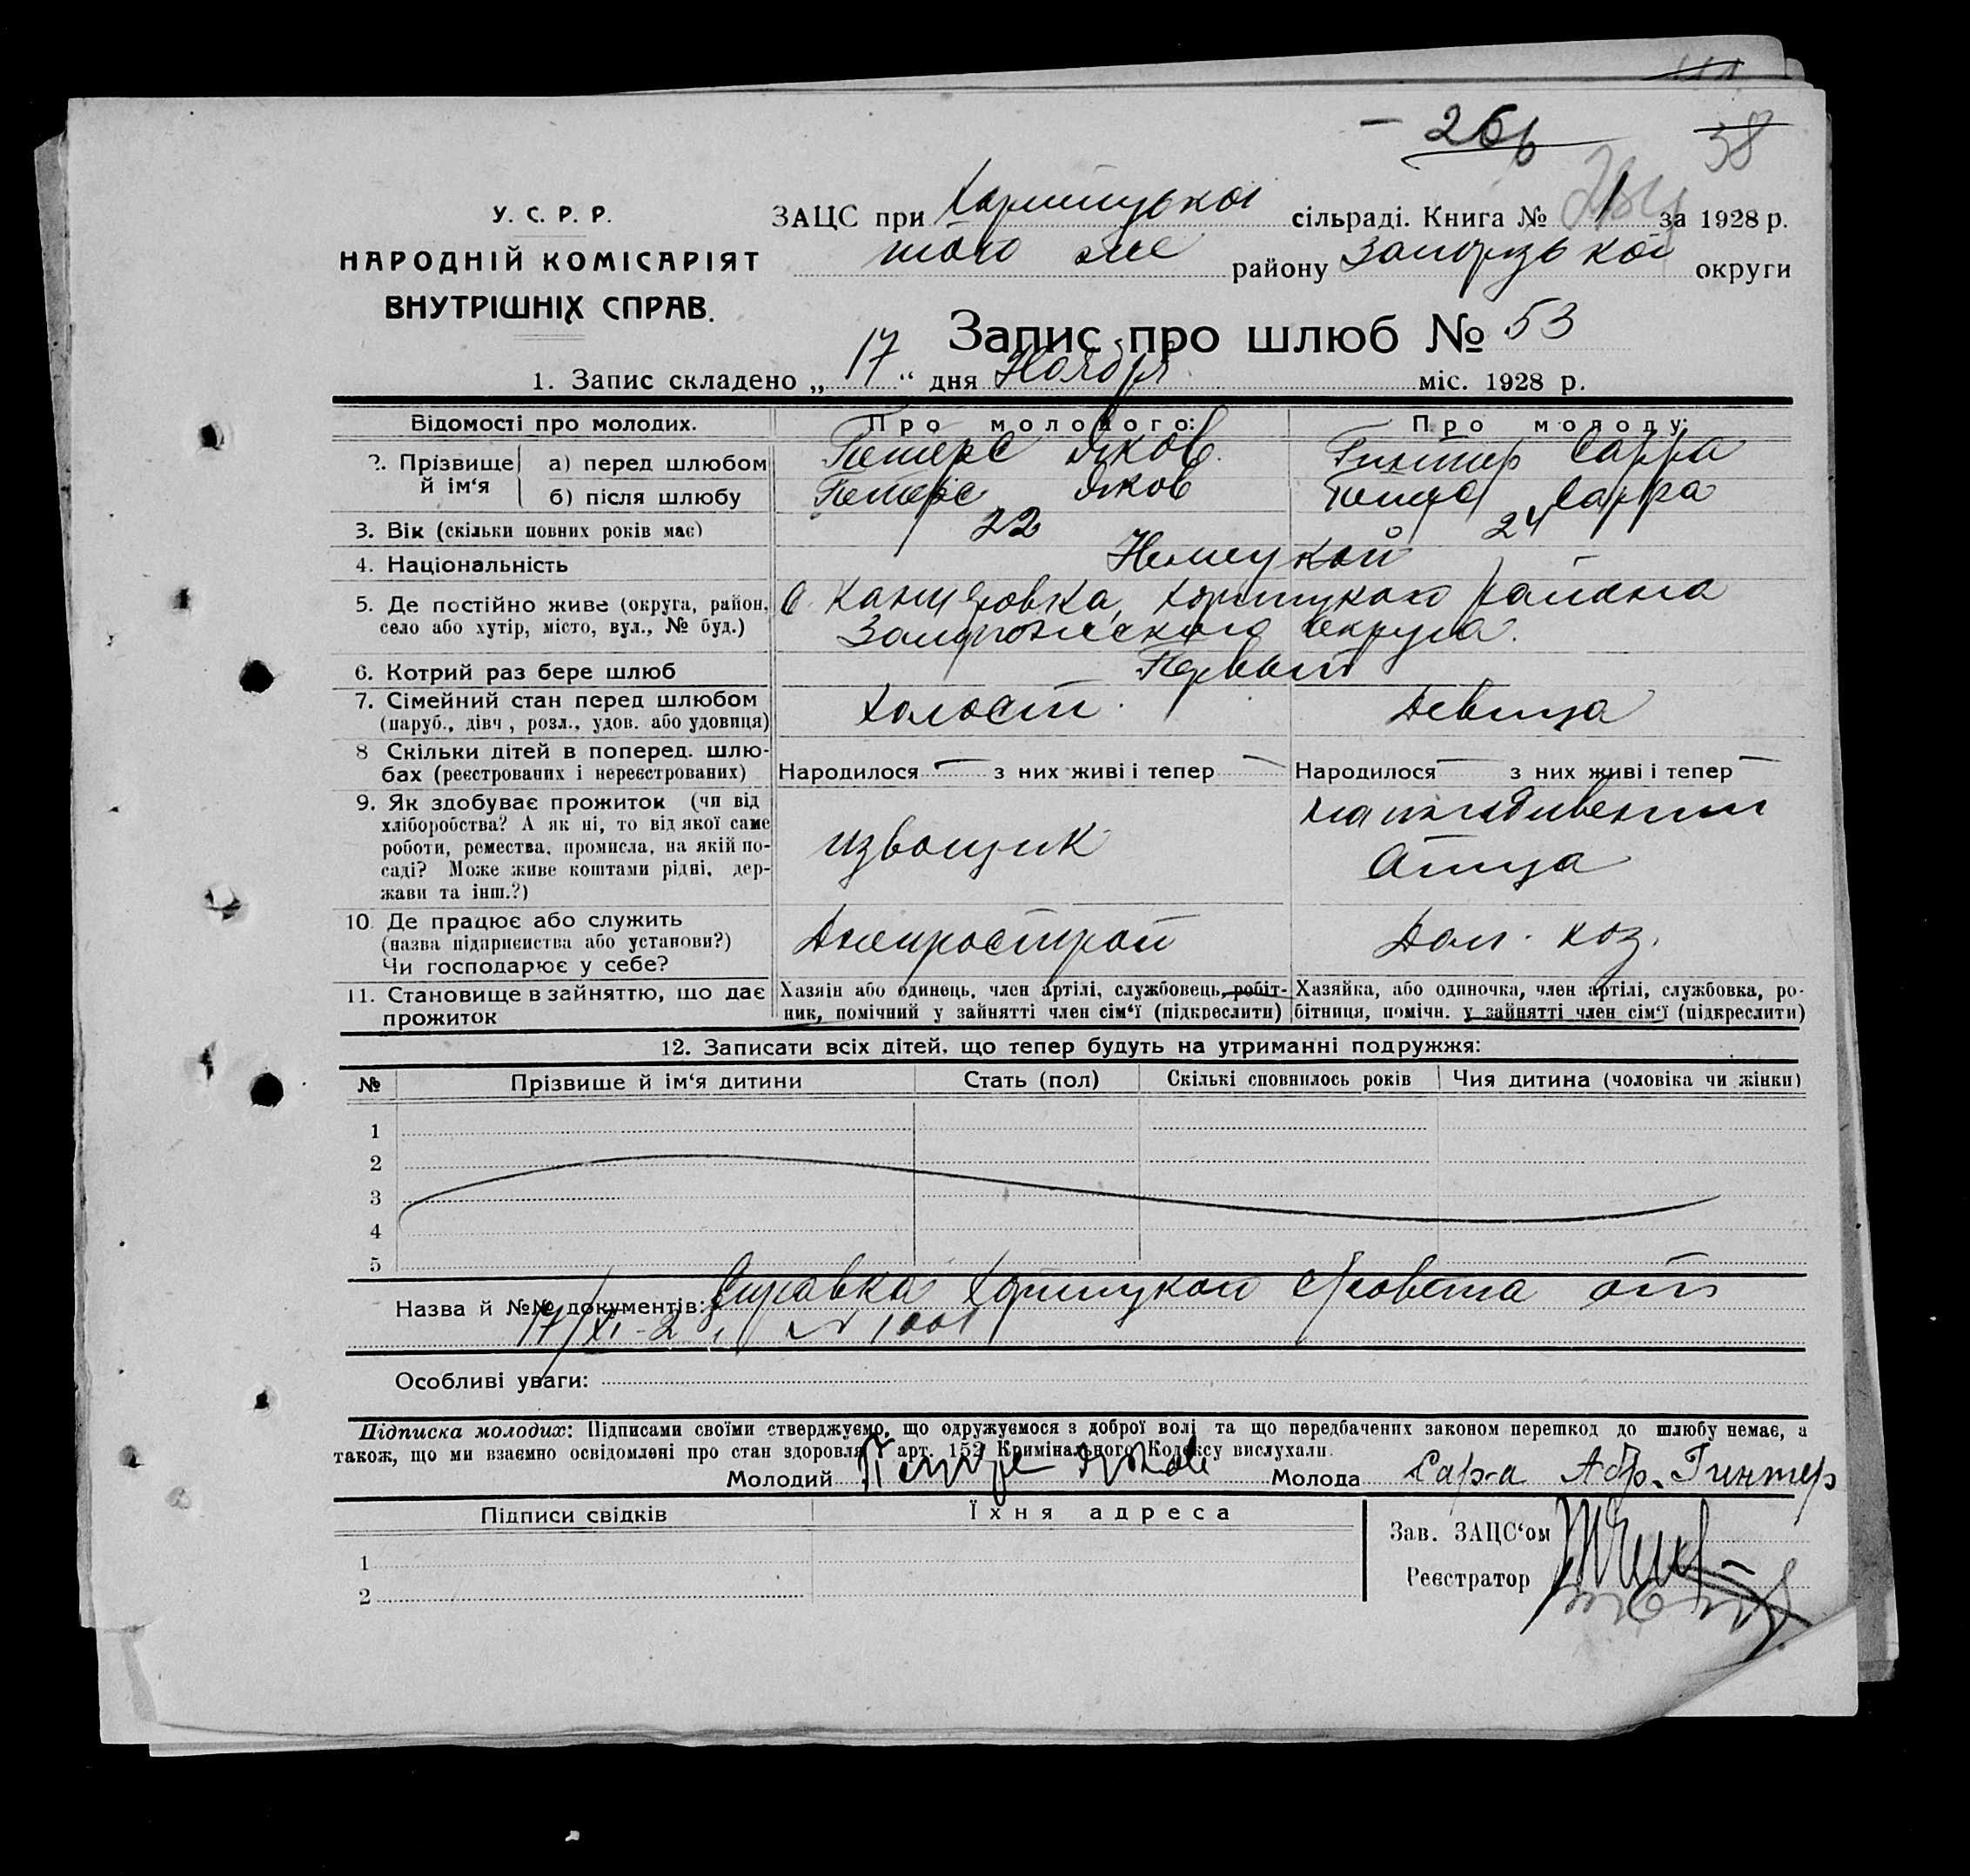 38
У. С. Р. Р.
НАРОДНІЙ КОМІСАРІЯТ
ВНУТРІШНІХ СПРАВ.
ЗАЦС при Хортицькой сільраді. Книга № 1 за 1928 р.
того же району Запорізькой округи
Запис про шлюб № 53
1. Запис складено „ 17 “ дня Ноября міс. 1928 р.
Відомості про молодих. Про молодого: Про молоду:
2. Прізвище й ім‘я а) перед шлюбом Петерс Яков. Гинтер Сарра
б) після шлюбу Петерс Яков Петерс Сарра
3. Вік (скільки повних років має) 22 24
4. Національність Немецкой
5. Де постійно живе (округа, район, с. Канцеровка, Хортицкого района
село або хутір, місто, вул., № буд.) Запорожского округа.
6. Котрий раз бере шлюб Первый
7. Сімейний стан перед шлюбом Холост. Девица
(паруб., дівч., розл., удов. або удовиця)
8 Скільки дітей в поперед. шлю-
бах (реєстрованих і нереєстрованих) Народилося — з них живі і тепер — Народилося — з них живі і тепер —
9. Як здобуває прожиток (чи від на иждивении
хліборобства? А як ні, то від якої саме
роботи, ремества, промисла, на якій по- извощик
саді? Може живе коштами рідні, дер- Отца
жави та інш.?)
10. Де працює або служить Днепрострой Дом. хоз.
(назва підприємства або установи?)
Чи господарює у себе?
11. Становище в зайняттю, що дає Хазяїн або одинець, член артілі, службовець, робіт- Хазяйка, або одиночка, член артілі, службовка, ро-
прожиток ник, помічний у зайнятті член сім‘ї (підкреслити) бітниця, помічн. у зайнятті член сім‘ї (підкреслити)
12. Записати всіх дітей, що тепер будуть на утриманні подружжя:
№ Прізвише й ім‘я дитини Стать (пол) Скількі сповнилось років Чия дитина (чоловіка чи жінки)
1
2
3
4
5
Назва й №№ документів: Справка Хортицкой с/совета от
17/XI-28 г. № 1001
Особливі уваги:
Підписка молодих: Підписами своїми стверджуємо, що одружуємося з доброї волі та що передбачених законом перешкод до шлюбу немає, а
також, що ми взаємно освідомлені про стан здоровля й арт. 152 Кримінального Кодексу вислухали.
Молодий Петерс Яков Молода Сара Абр. Гинтер
Підписи свідків Їхня адреса
Зав. ЗАЦС‘ом
1
Реєстратор
2